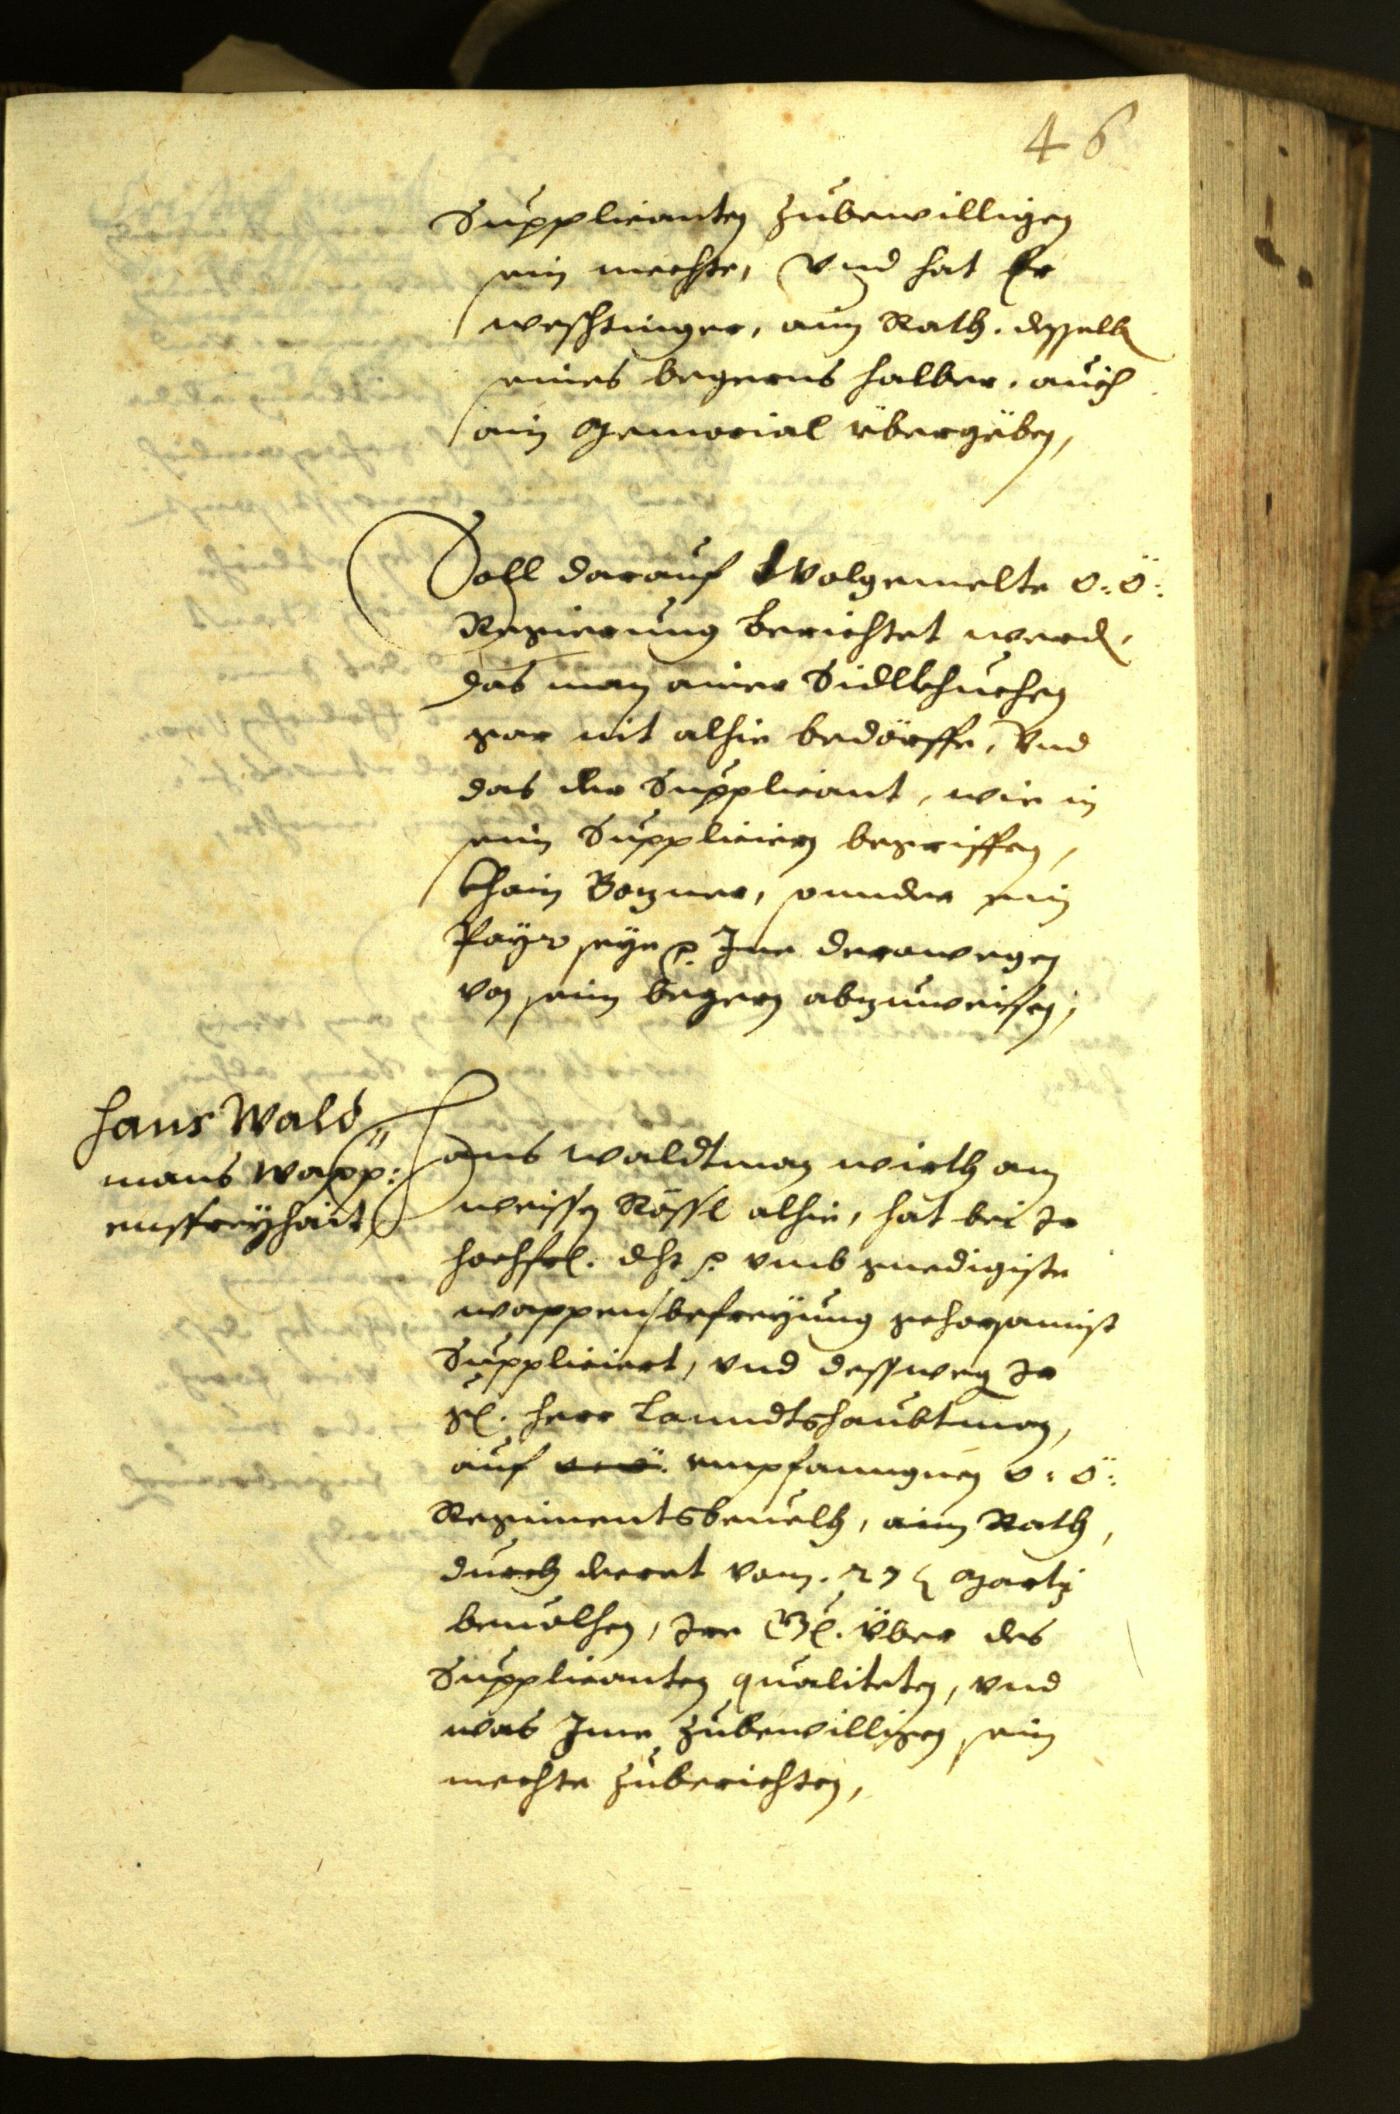 46
Supplicanten zubewilligen
sein mechte, Vnd hat Er
weschtinger, aim Rath. desselb
seines begerns halber. auch
ain Memorial übergeben,
Soll darauf Wolgemelte o: ö:
Regierung berichtet werd,
das man ainer Sidlkhuchen
gar nit alhie bedörffe, Vnd
das der Supplicant, wie in
seim Suppliciern begriffen,
khain Bozner, sonnder ein
Payr seye Ine derawegen
von seim begern abzuweisen,
Hans Wald
mans Wapp:
ensfreyhait
Hans Waldtman wirth am
weissen Rössl alhie, hat bei Ir
hochfl. dht vmb gnedigiste
wappensbefreyung gehorsamist
Suppliciert, vnd dessweg Ir
gl. herr Lanndtshaubtman,
auf empfanngnen o: ö:
Regimentsbeuelh, aim Rath,
durch decret vom. 27 Martij
beuolhen, Ire Gl. über des
Supplicanten qualiteten, vnd
was Ime zubewilligen sein
mechte zuberichten,